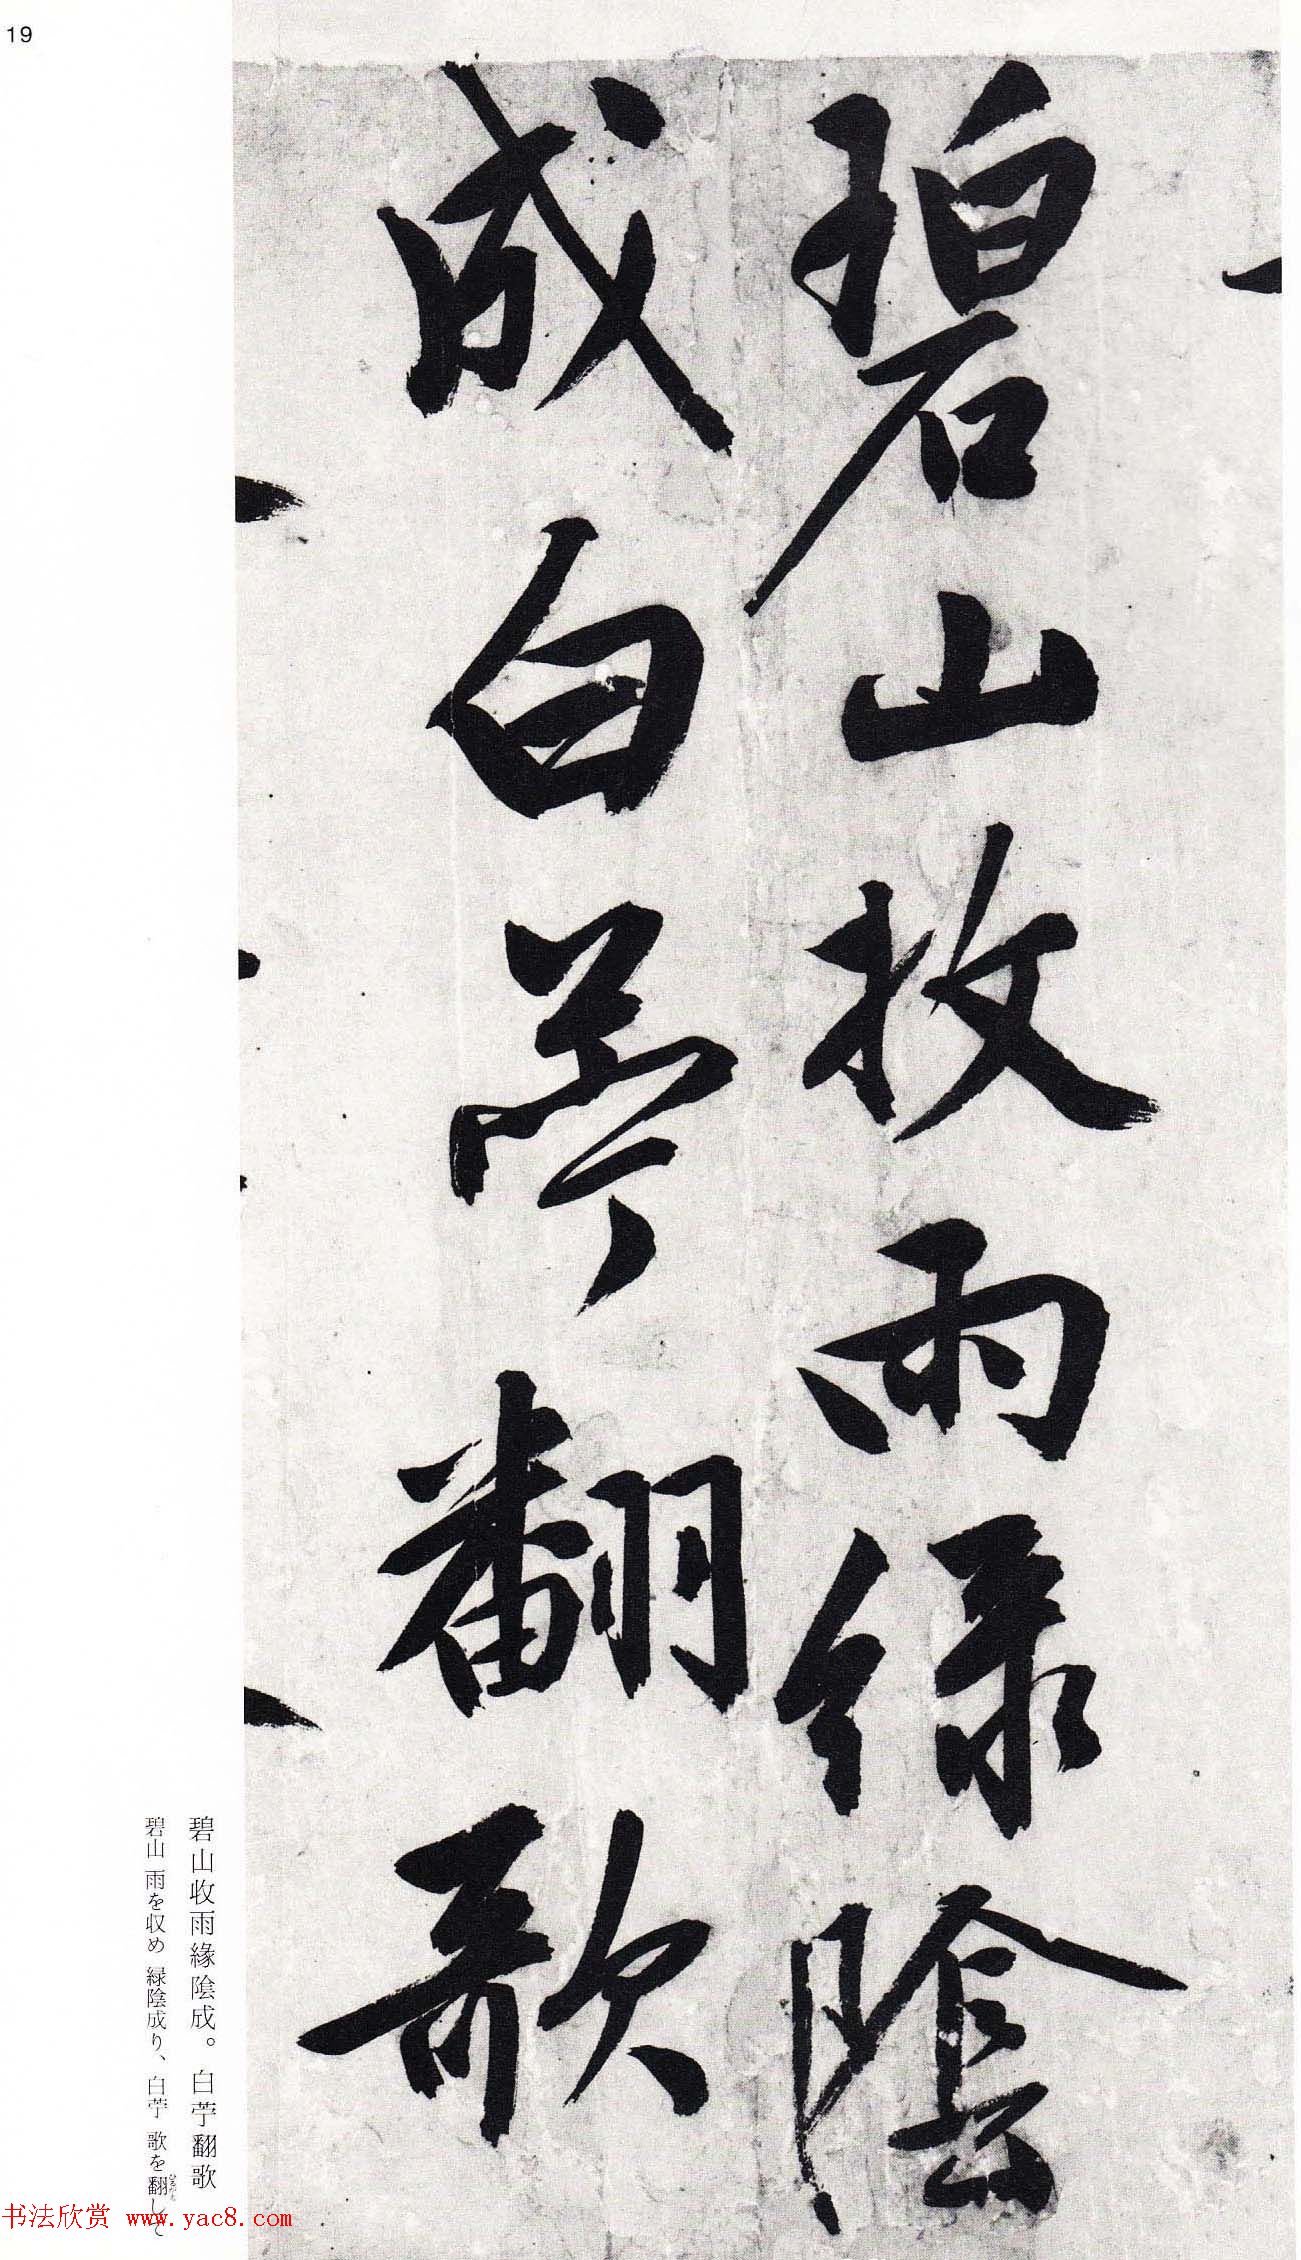 19
碧山收雨緑陰
成白苧翻歌
碧山收雨緣陰成。白苧翻歌
碧山 雨を収め 緑陰成り、白苧 歌を翻して
ひるがえ
书法欣赏 www.yac8.com